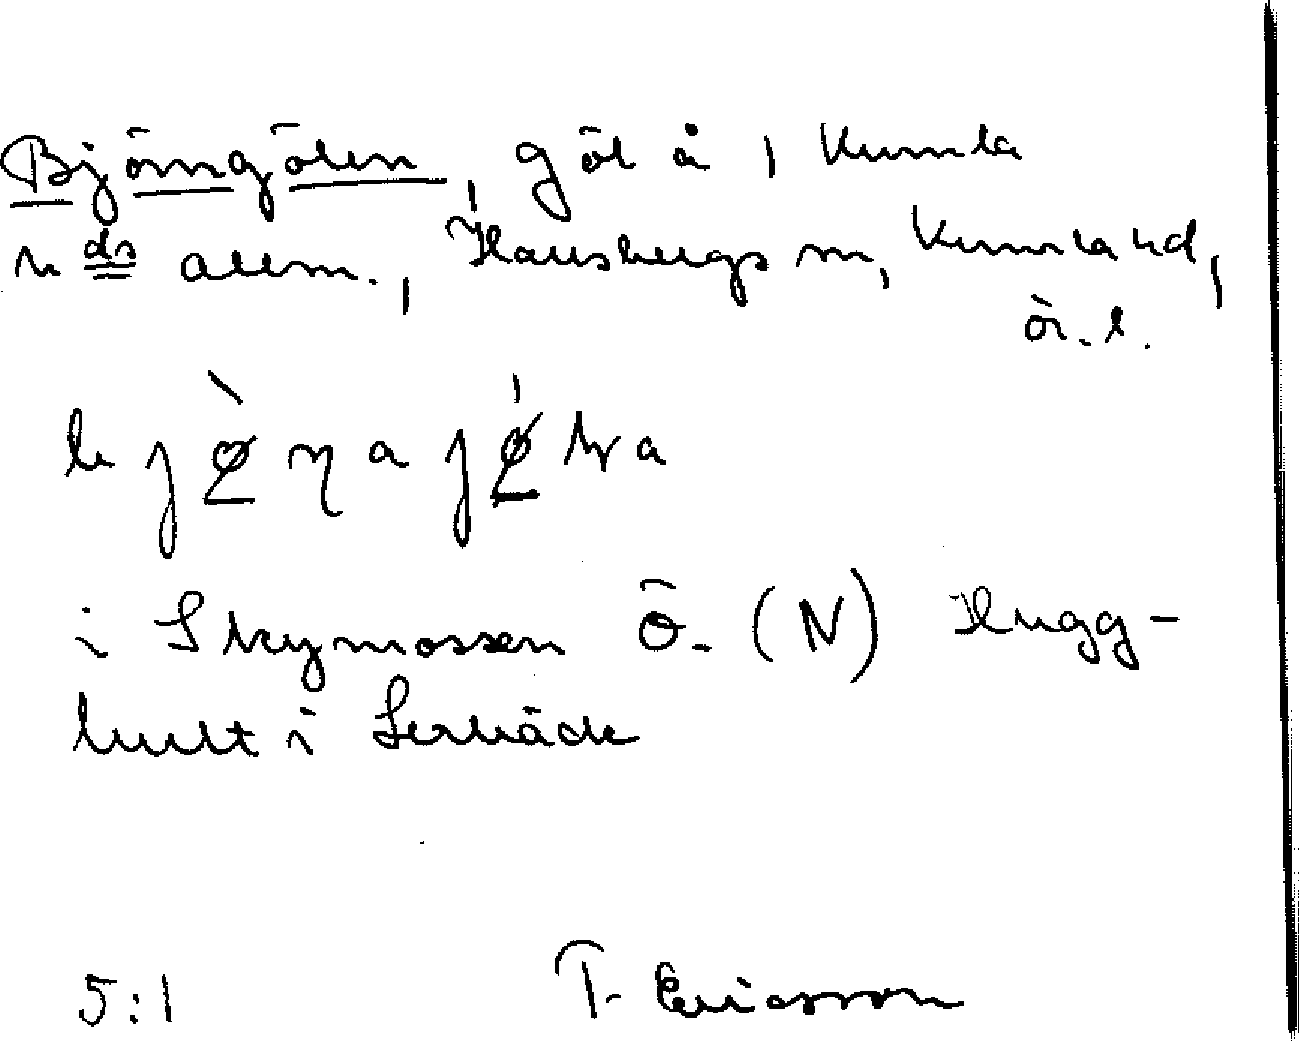 Björngölen, göl å, Kumla
sds allm., Hallsbergs m, Kumla hd,
Ör. l.
bjø̀ŋajǿla
i Skymossen Ö. (N) Hugg-
hult i Lerbäck
5:1 T. Ericsson